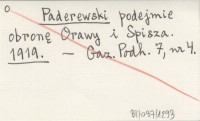 Paderewski podejmie
obronę Orawy i Spisza.
1919. — Gaz. Podh. 7, nr 4.